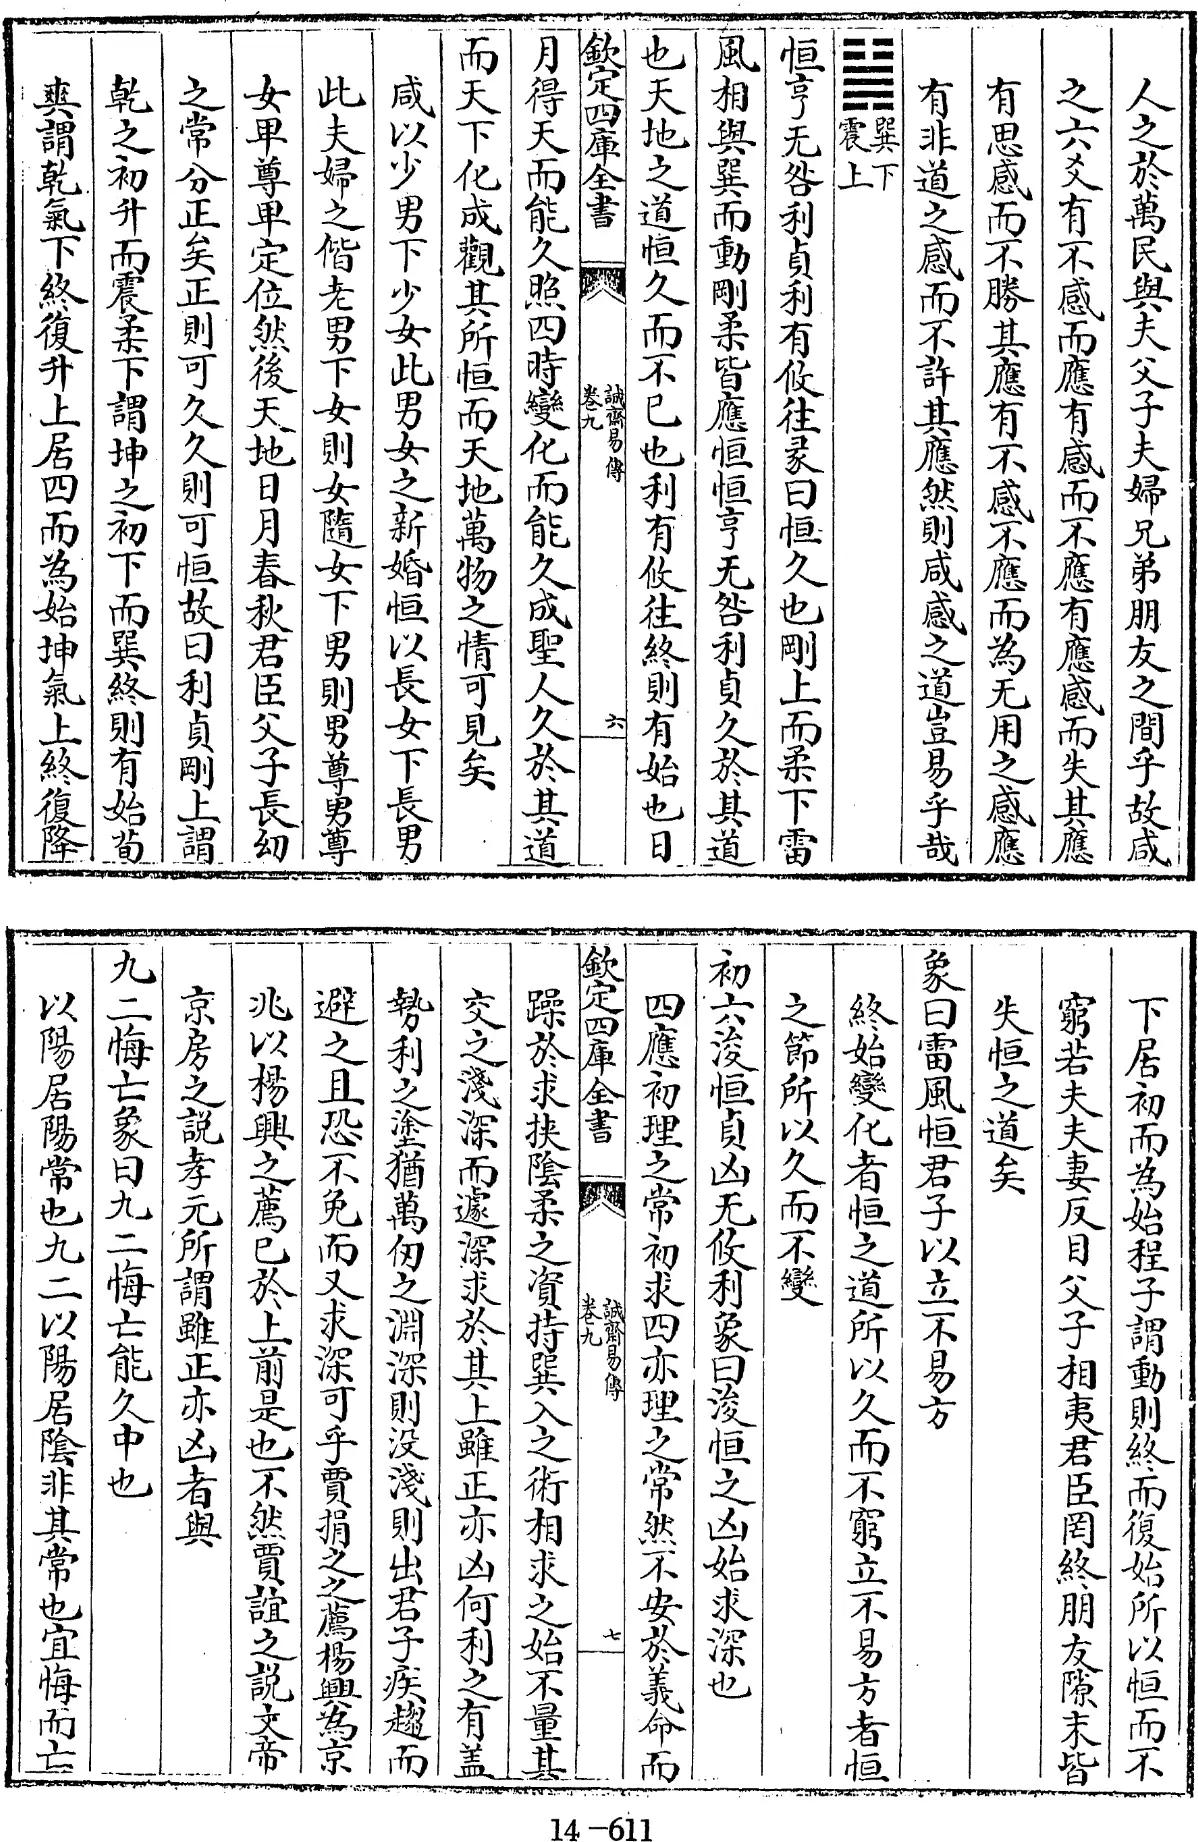 人之於萬民與夫父子夫婦兄弟朋友之間乎故咸
之六爻有不感而應有感而不應有應感而失其應
有思感而不勝其應有不感不應而為无用之感應
有非道之感而不許其應然則咸感之道豈易乎哉
䷟巽下震上
恒亨无咎利貞利有攸往彖曰恒久也剛上而柔下雷
風相與巽而動剛柔皆應恒恒亨无咎利貞久於其道
也天地之道恒久而不已也利有攸往終則有始也日
欽定四庫全書 誠齋易傳卷九 六
月得天而能久照四時變化而能久成聖人久於其道
而天下化成觀其所恒而天地萬物之情可見矣
咸以少男下少女此男女之新婚恒以長女下長男
此夫婦之偕老男下女則女隨女下男則男尊男尊
女卑尊卑定位然後天地日月春秋君臣父子長幼
之常分正矣正則可久久則可恒故曰利貞剛上謂
乾之初升而震柔下謂坤之初下而巽終則有始荀
爽謂乾氣下終復升上居四而為始坤氣上終復降
下居初而為始程子謂動則終而復始所以恒而不
窮若夫夫妻反目父子相夷君臣罔終朋友隙末皆
失恒之道矣
象曰雷風恒君子以立不易方
終始變化者恒之道所以久而不窮立不易方者恒
之節所以久而不變
初六浚恒貞凶无攸利象曰浚恒之凶始求深也
四應初理之常初求四亦理之常然不安於義命而
欽定四庫全書 誠齋易傳卷九 七
躁於求挾陰柔之資持巽入之術相求之始不量其
交之淺深而遽深求於其上雖正亦凶何利之有蓋
勢利之塗猶萬仞之淵深則没淺則出君子疾趨而
避之且恐不免而又求深可乎賈捐之之薦楊興為京
兆以楊興之薦已於上前是也不然賈誼之説文帝
京房之説孝元所謂雖正亦凶者與
九二悔亡象曰九二悔亡能久中也
以陽居陽常也九二以陽居陰非其常也宜悔而亡
14-611